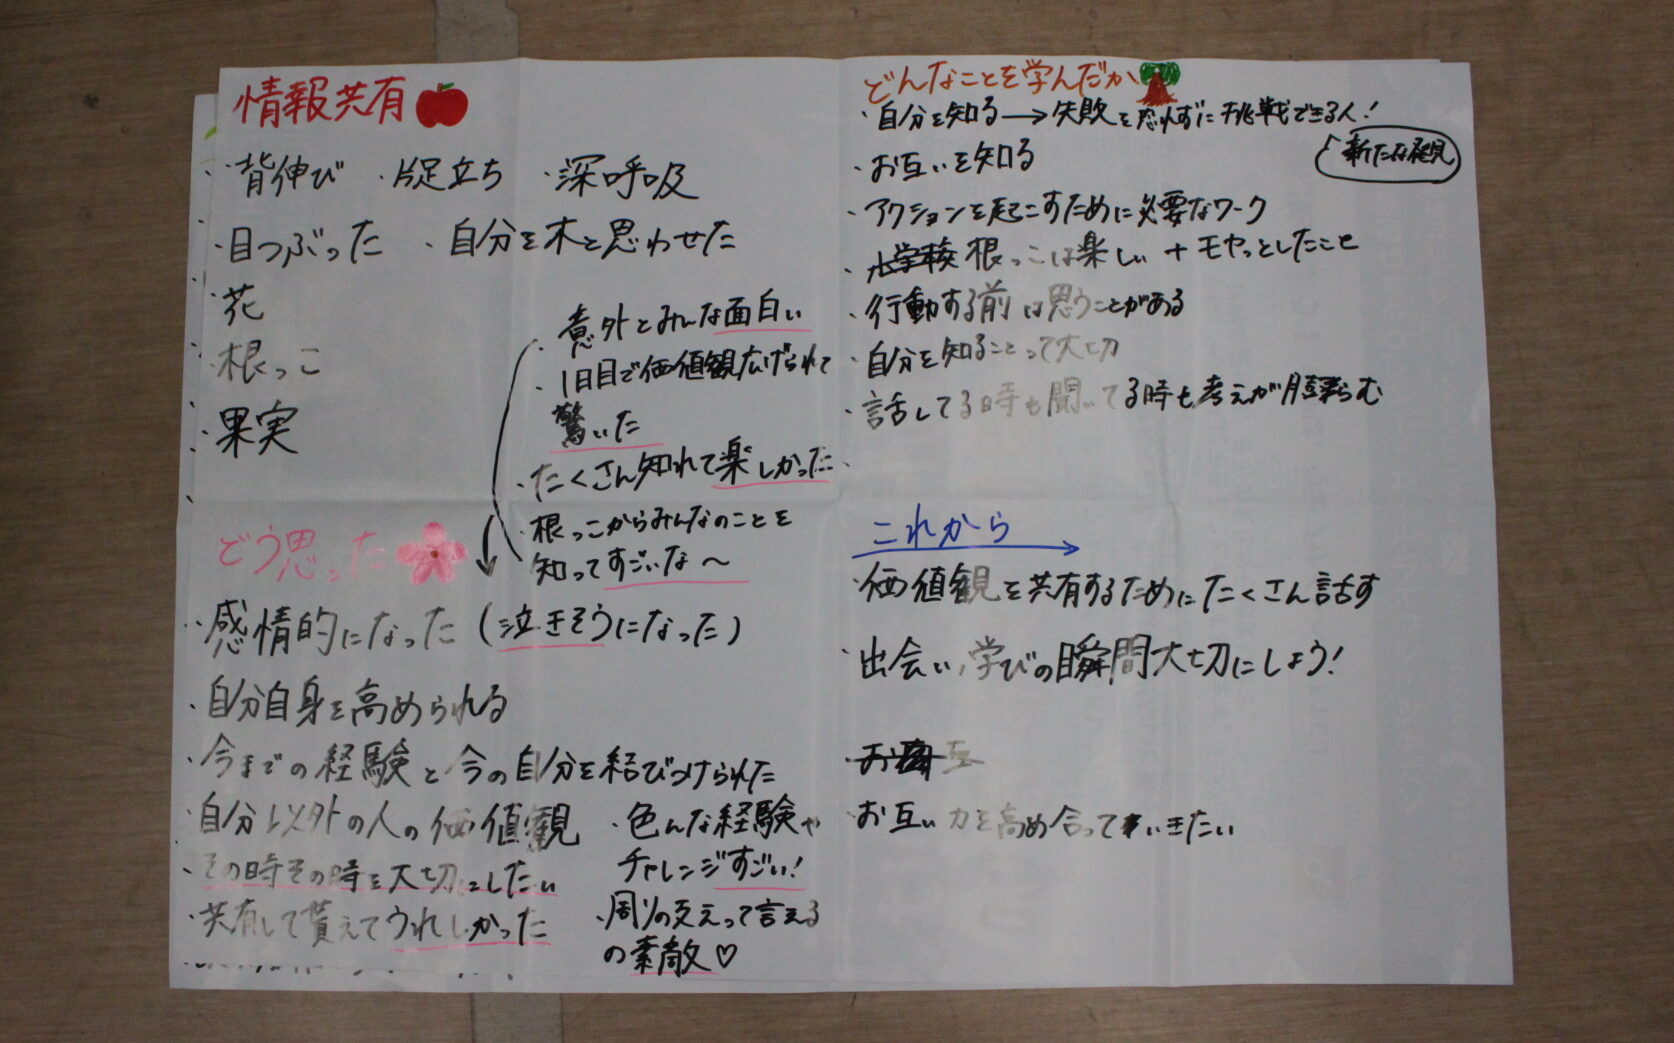 情報共有
・背伸び ・片足立ち ・深呼吸
・目つぶった ・自分を木と思わせた
・花
・根っこ
・果実
どう思った
・意外とみんな面白い
・1日目で価値観広げられて
驚いた
・たくさん知れて楽しかった
・根っこからみんなのことを
知ってすごいな〜
・感情的になった(泣きそうになった)
・自分自身を高められる
・今までの経験と今の自分を結びつけられた
・自分以外の人の価値観
・その時その時を大切にしたい
・共有して貰えてうれしかった
・色んな経験や
チャレンジすごい!
・周りの支えって言える
の素敵♡
どんなことを学んだか
・自分を知る→失敗を恐れずに挑戦できる人!
新たな発見
・お互いを知る
・アクションを起こすために必要なワーク
・根っこは楽しい+モヤっとしたこと
・行動する前は思うことがある
・自分を知ることって大切
・話してる時も聞いてる時も考えが膨らむ
これから
・価値観を共有するためにたくさん話す
・出会い、学びの瞬間大切にしよう!
・お互い力を高め合っていきたい